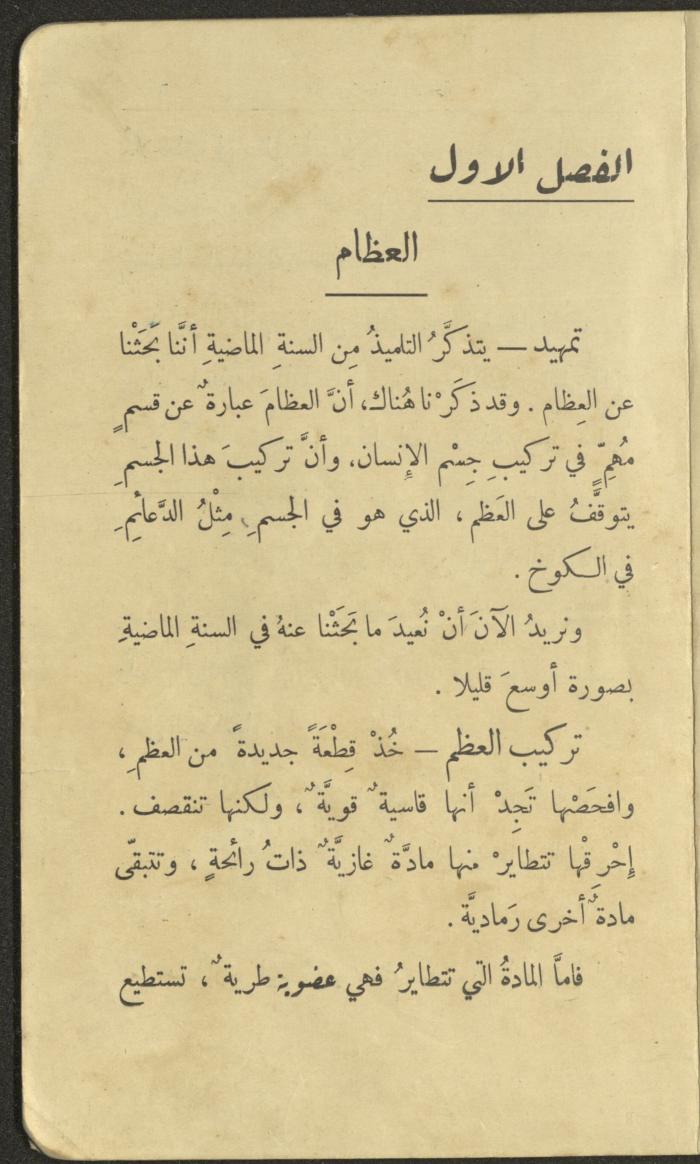 الفصل الاول
العظام
تمهيد — يتذكَّرُ التلميذُ مِن السنةِ الماضيةِ أنَّنا بَحَثْنا
عن العِظام . وقد ذكَرْنا هُناك، أنَّ العظامَ عبارةٌ عن قسمٍ
مُهِمٍّ في تركيبِ جِسْم الإِنسان، وأنَّ تركيبَ هذا الجسمِ
يتوقَّفُ على العَظم ، الذي هو في الجسمِ، مِثْلُ الدَّعائِمِ
في الكوخ .
ونريدُ الآنَ أنْ نُعيدَ ما بَحَثْنا عنهُ في السنةِ الماضيةِ
بصورة أوسعَ قليلا .
تركيب العظم — خُذْ قِطْعَةً جديدةً من العظمِ ،
وافحَصْها تَجِدْ أنها قاسيةٌ قويَّةٌ ، ولكنها تنقصف .
إِحْرِقْها تتطايرْ منها مادَّةٌ غازيَّةٌ ذاتُ رائحةٍ ، وتتبقّى
مادةٌ أخرى رَماديَّة .
فامَّا المادةُ التي تتطايرُ فهي عضوية طريةٌ ، تستطيع